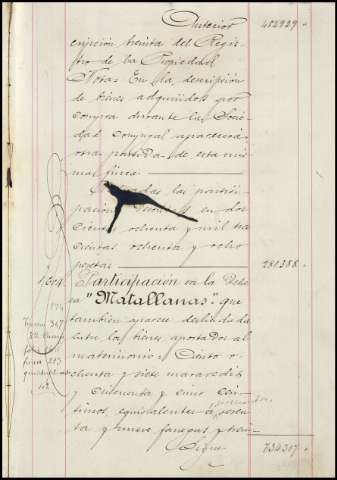 Anterior 452929.
cripción treinta del Regis-
tro de la Propiedad.
Notas. En la descripción
de bienes adquiridos por
compra durante la Socie-
dad conyugal aparecerá
otra partida de esta mis-
ma finca.
las partici-
paciones en dos-
cientos ochenta y mil tres-
cientas ochenta y ocho
pesetas 281388.
Participación en la Dehe-
sa "Matallanas", que
también aparece deslindada
entre los bienes aportados al
matrimonio: Ciento o-
chenta y siete maravedís
y cincuenta y cinco cén-
timos, equivalentes á sesen-
ta y nueve fanegas y
Sigue 734317.